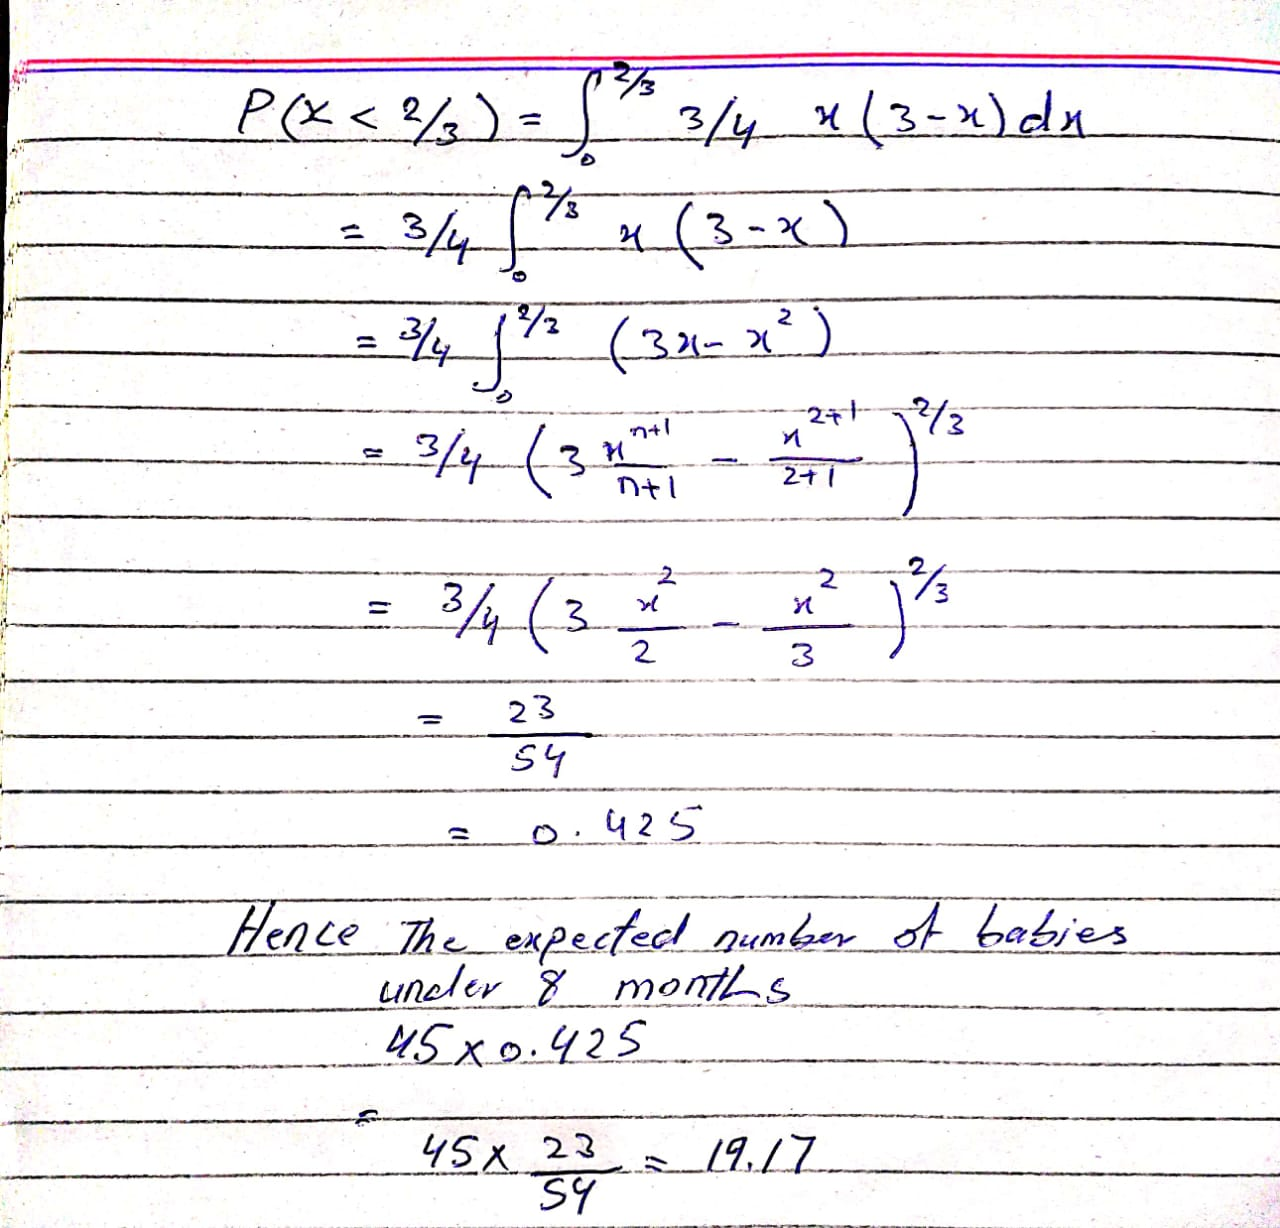 P(x < 2/3) = ∫₀^2/3 3/4 x(3-x)dx
= 3/4 ∫₀^2/3 x(3-x)
= 3/4 ∫₀^2/3 (3x-x²)
= 3/4 (3 x^n+1/n+1 - x^2+1/2+1)^2/3
= 3/4 (3 x²/2 - x²/3)^2/3
= 23/54
= 0.425
Hence The expected number of babies
under 8 months
45 x 0.425
=
45 x 23/54 = 19.17